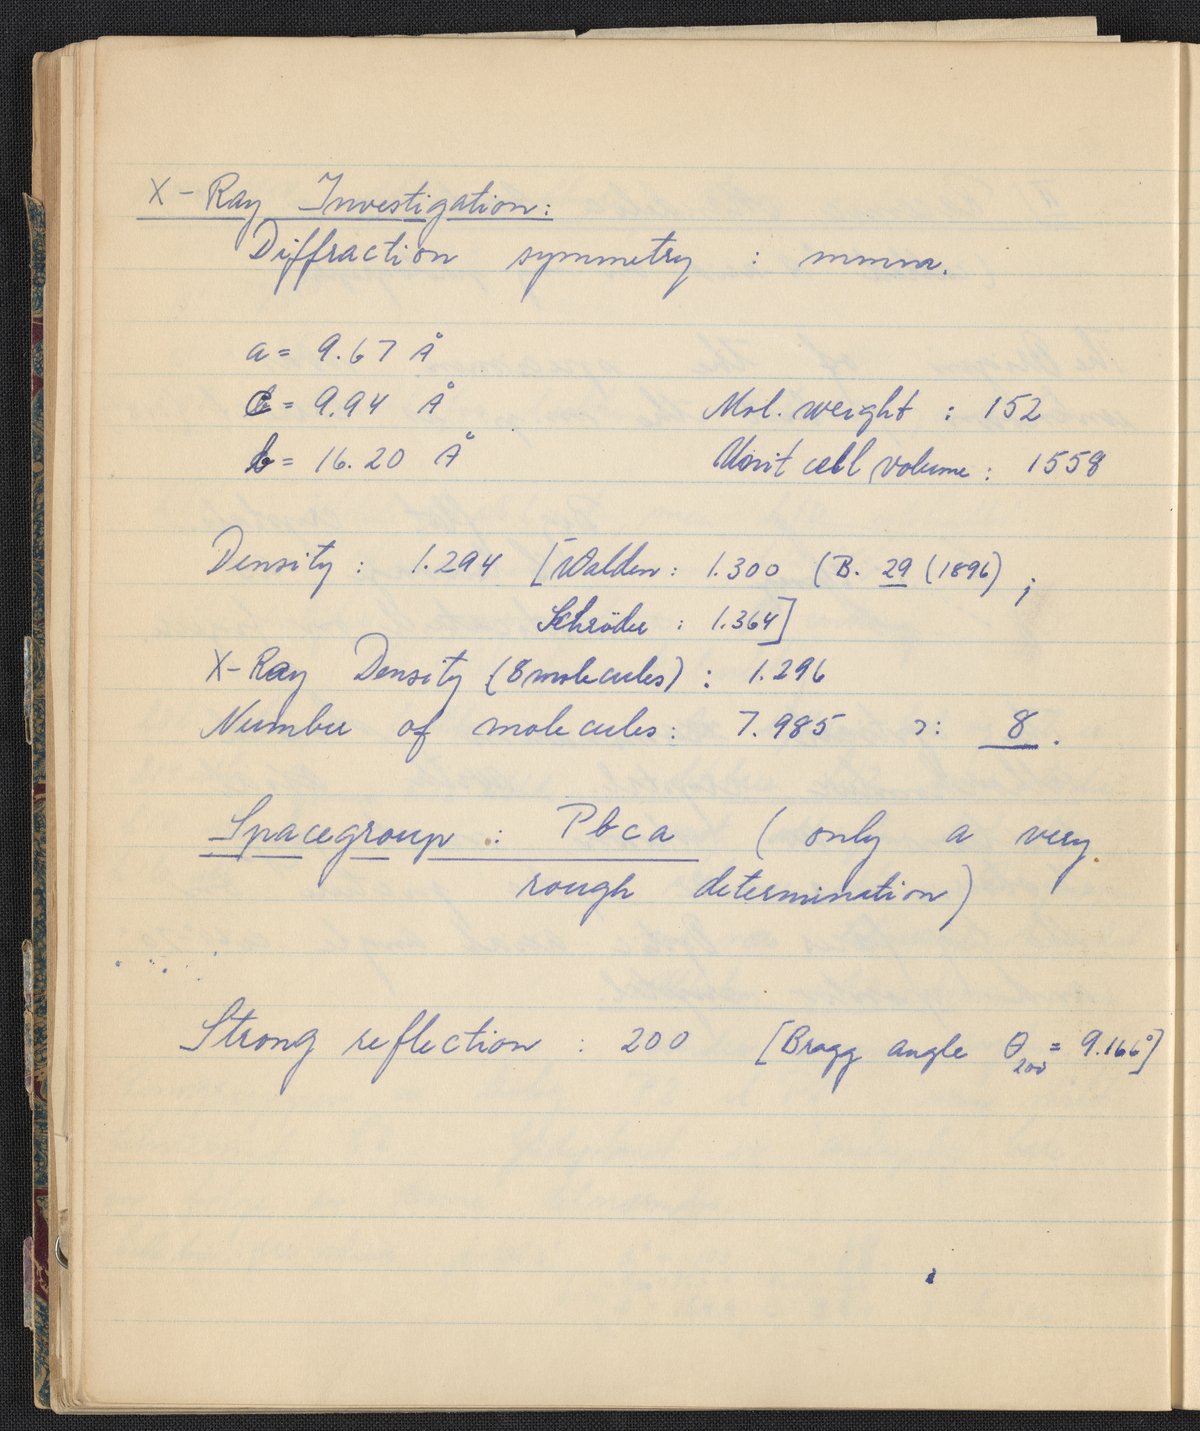 X-Ray Investigation:
Diffraction symmetry : mmm.
a = 9.67 Å
c = 9.94 Å
Mol. weight : 152
b = 16.20 Å
Unit cell volume : 1558
Density : 1.294 [Walden : 1.300 (B. 29 (1896) ;
Schröder : 1.364]
X-Ray Density (8 molecules) : 1.296
Number of molecules : 7.985 ɔ: 8.
Spacegroup : Pbca (only a very
rough determination)
Strong reflection : 200 [Bragg angle θ200 = 9.166°]